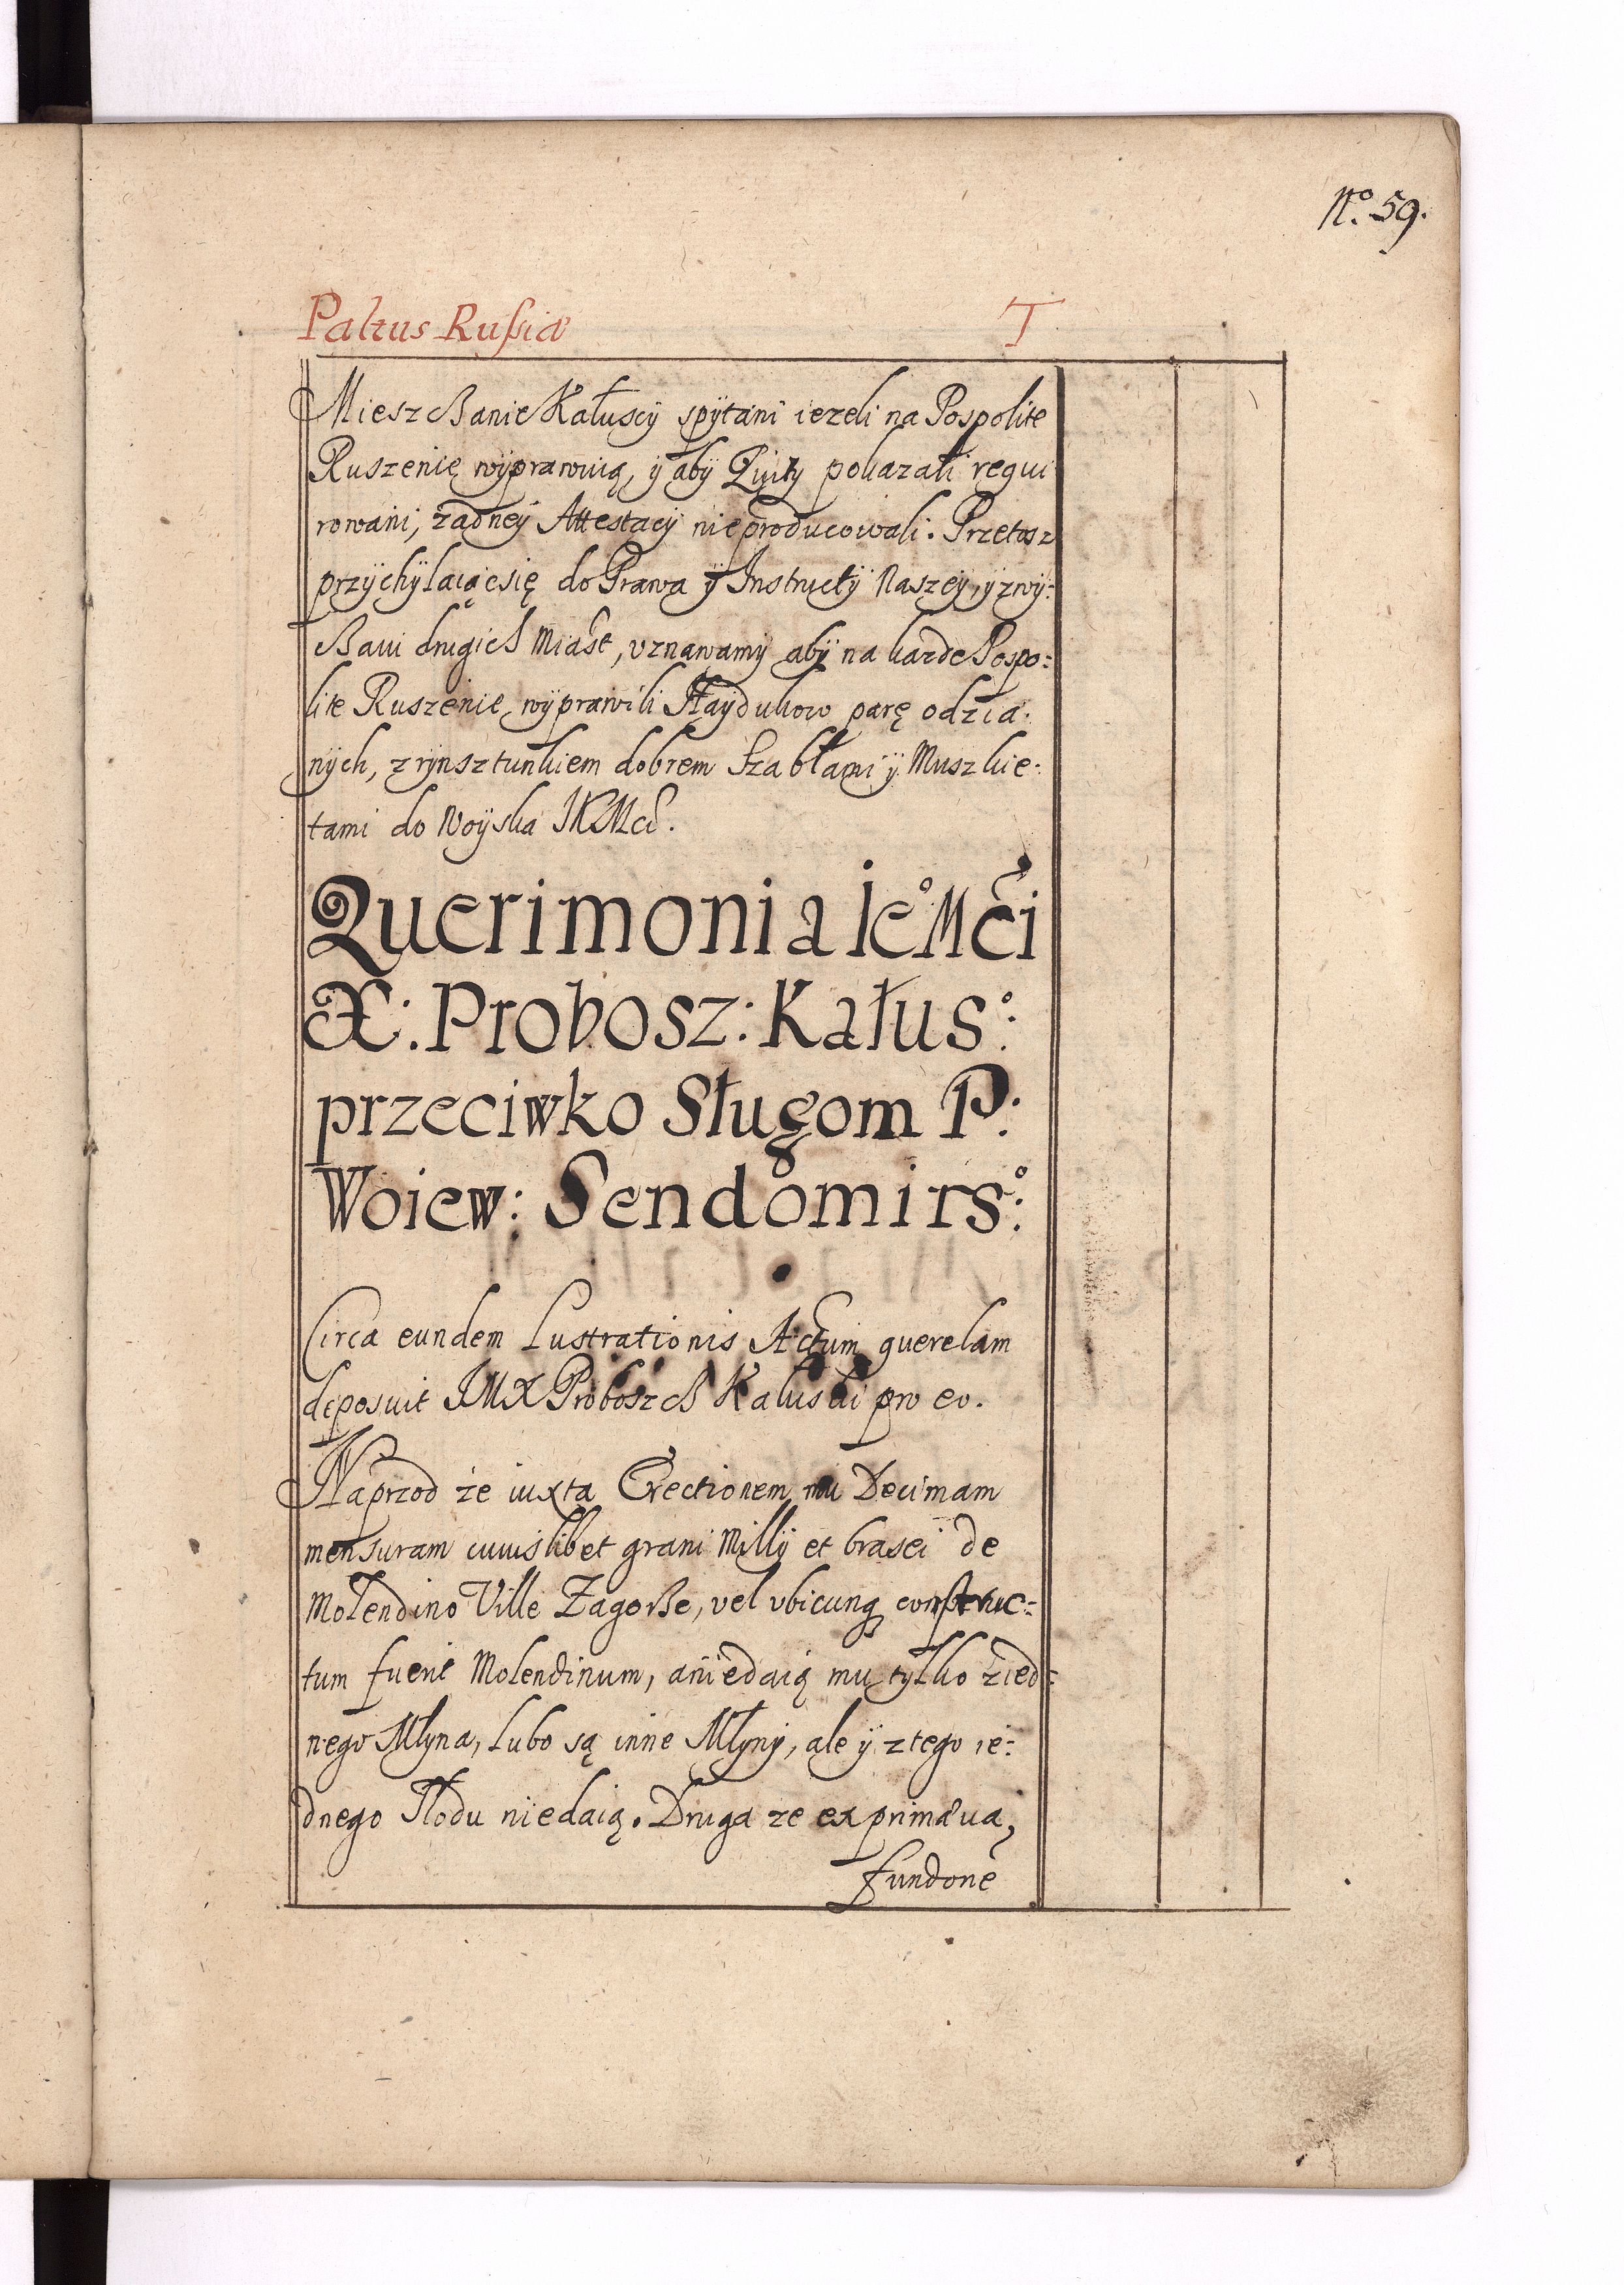 No. 59.
Paltus Russiæ T
Mieszczanie Kałuscÿ spÿtani iezeli na Pospolite
Ruszenię wÿprawuią, ÿ abÿ Quitÿ pokazali requi
rowani, zadneÿ Attestacÿ nieproducowali. Przetosz
przÿchÿlaiącsię do Prawa ÿ Instructÿ Naszeÿ, ÿ zwÿ:
czaiu drugich Miast, vznawamÿ abÿ na kazde Pospo:
lite Ruszenie wÿprawili Haÿdukow parę odzia:
nÿch, z rÿnsztunkiem dobrem Szablami ÿ Muszkie:
tami do Woÿska JKMci.
Querimonia Ieo Mci
X: Probosz: Kałuso:
przeciwko Sługom P:
Woiew: Sendomirso:
Circa eundem Lustrationis Actum querelam
deposuit JMX Proboszcz Kaluski pro eo.
Naprzod że iuxta Erectionem mu Decimam
mensuram cuiuslibet grani Millÿ et brasei de
Molendino Ville Zagorze, vel vbicunq construc:
tum fuerit Molendinum, aniedaią mu tÿlko zied:
nego Młÿna, lubo są inne Młÿnÿ, ale ÿ z tego ie:
dnego Słodu niedaią. Druga ze ex primæua,
fundone